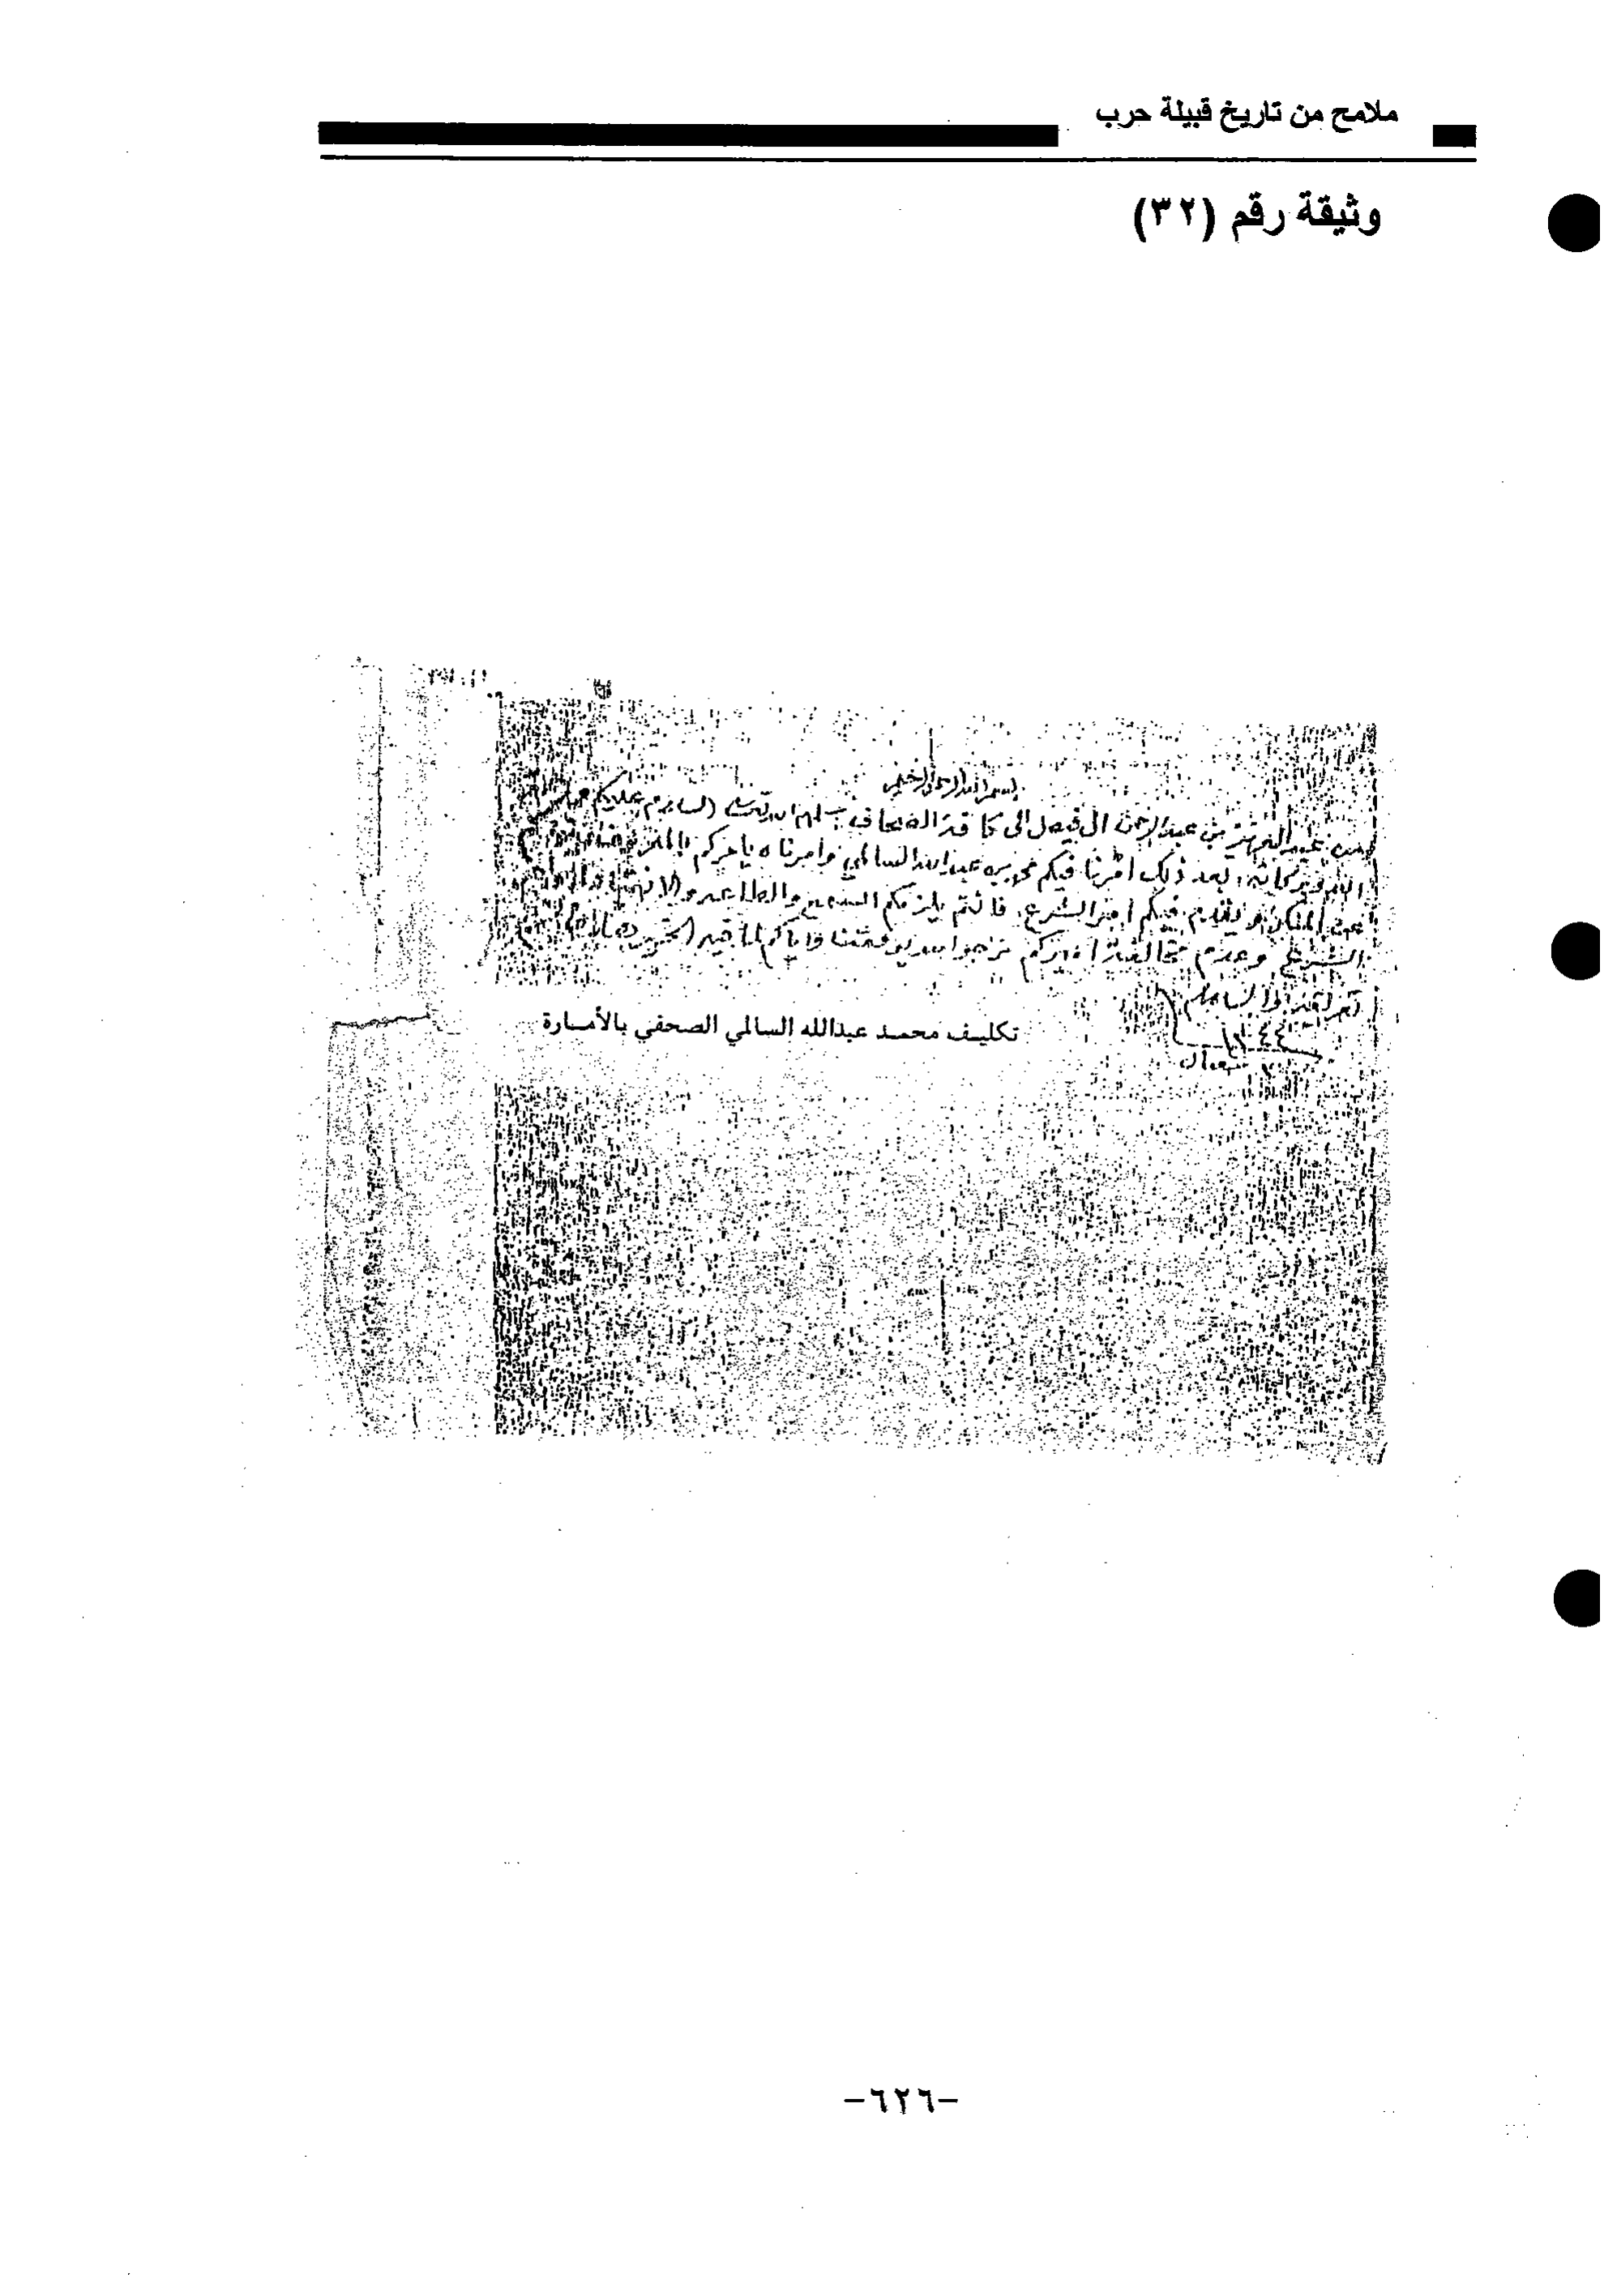 ملامح من تاريخ قبيلة حرب
وثيقة رقم (٣٢)
بسم الله الرحمن الرحيم
من عبد العزيز بن عبد الرحمن ال فيصل الى كافة الصحاف سلمهم الله تعالى السلام عليكم
وبركاته بعد ذلك امرنا فيكم محمد بن عبد الله السالمي وامرناه يامركم بالمعروف
عن المنكر ويقدم فيكم امر الشرع فانتم يلزمكم السمع والطاعه والانقياد
الشرعي وعدم مخالفة اميركم نرجو الله يوفقنا واياكم لما فيه الخير
والسلام
١٣٤٤
شعبان
تكليف محمد عبدالله السالمي الصحفي بالأمارة
-٦٢٦-